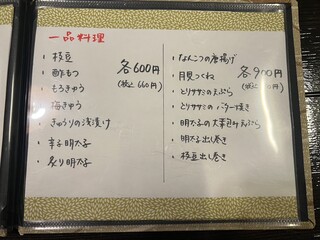 一品料理
・枝豆
・酢もつ
・もろきゅう
・梅きゅう
・きゅうりの浅漬け
・辛子明太子
・炙り明太子
各600円
(税込660円)
・なんこつの唐揚げ
・月見つくね
・とりササミの天ぷら
・とりササミのバター焼き
・明太子の大葉包み天ぷら
・明太子出し巻き
・枝豆出し巻き
各900円